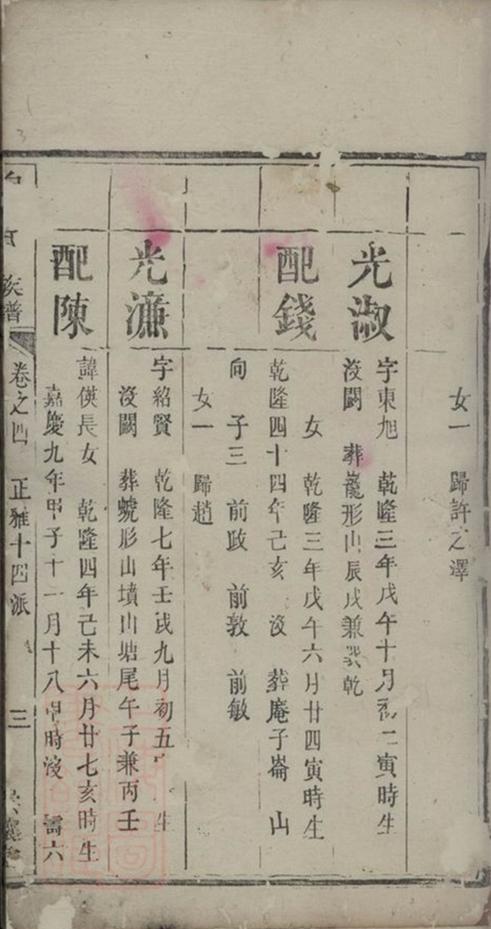 女一　歸許之澤
光淑
字東旭　乾隆三年戊午十月初二寅時生
沒闕　葬龍形山辰戌兼巽乾
配錢
女　乾隆三年戊午六月廿四寅時生
乾隆四十四年己亥　沒　葬庵子崙山
向　子三　前政　前敦　前敏
女一　歸趙
光濂
字紹賢　乾隆七年壬戌九月初五　生
沒闕　葬蛯形山墳山塘尾午子兼丙壬
配陳
諱偀長女　乾隆四年己未六月廿七亥時生
嘉慶九年甲子十一月十八申時沒　壽六
族譜　卷之四　正雅十四派　三